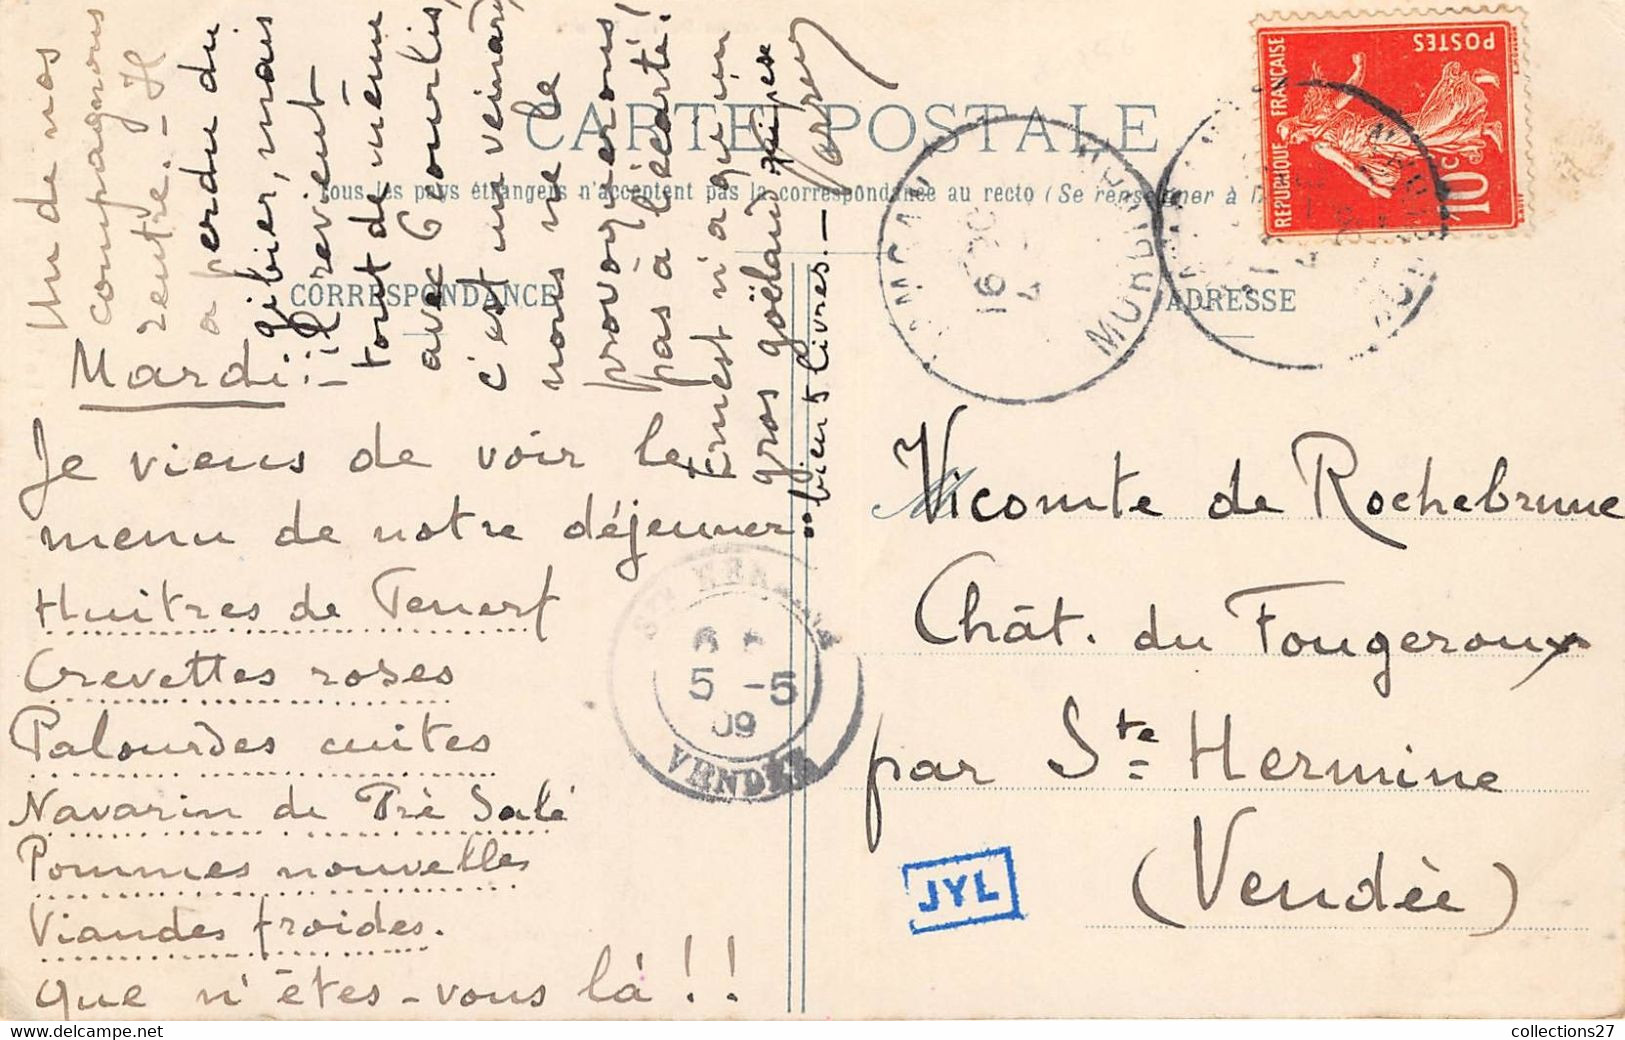 CARTE POSTALE
Tous les pays étrangers n'acceptent pas la correspondance au recto (Se renseigner à la
CORRESPONDANCE
ADRESSE
REPUBLIQUE FRANÇAISE
POSTES
10c
Mardi :-
Je viens de voir le
menu de notre déjeuner :
Huîtres de Penerf
Crevettes roses
Palourdes cuites
Navarin de Pré Salé
Pommes nouvelles
Viandes froides.
que n'êtes-vous là !!
Un de nos
compagnons
rentre.- Il
a perdu du
gibier, mais
il revient
tout de même
avec 6 courlis,
c'est un veinard,
nous ne le
provoquerons
pas à l'écarté!
Ernest n'a qu'un
gros goëland qui pèse
bien 5 livres.-
Vicomte de Rochebrune
Chât. du Fougeroux
par Ste Hermine
(Vendée)
MORBIHAN
16
4
STE HERMINE
5 -5
09
VENDÉE
JYL
collections27